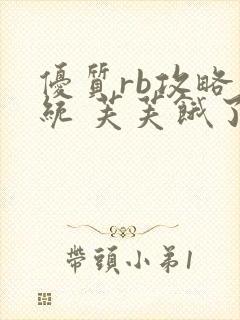 優質rb攻略
統 芙芙餓了
帶頭小弟1